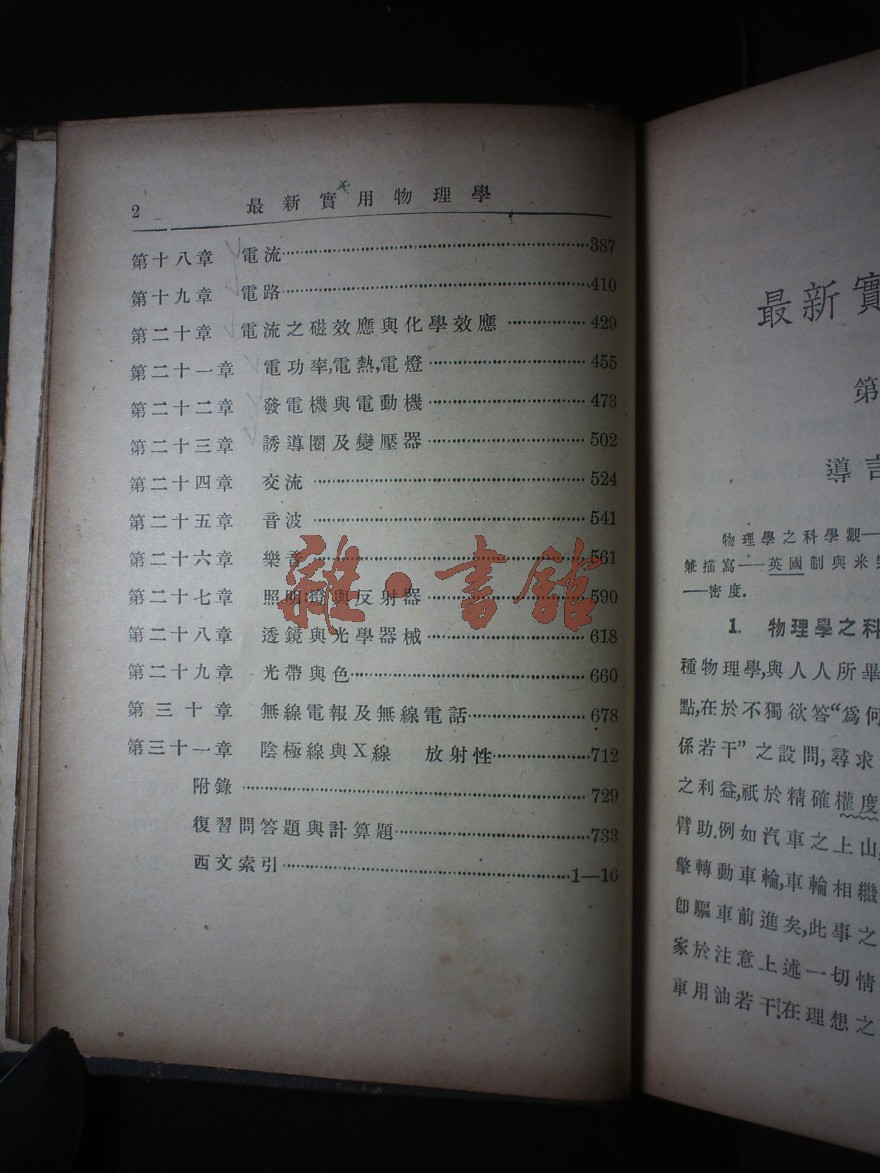 2 最新實用物理學
第十八章 電流……387
第十九章 電路……410
第二十章 電流之磁效應與化學效應……429
第二十一章 電功率,電熱,電燈……455
第二十二章 發電機與電動機……473
第二十三章 誘導圈及變壓器……502
第二十四章 交流……524
第二十五章 音波……541
第二十六章 樂音……561
第二十七章 照明:燈與反射器……590
第二十八章 透鏡與光學器械……618
第二十九章 光帶與色……660
第三十章 無線電報及無線電話……678
第三十一章 陰極線與X線 放射性……712
附錄……729
復習問答題與計算題……733
西文索引……1—16
雜·書館
最新實
第
導言
物理學之科學觀—
兼描寫——英國制與米
——密度.
1. 物理學之科
種物理學,與人人所畢
點,在於不獨欲答“爲何
係若干”之設問,尋求
之利益,祇於精確權度
臂助.例如汽車之上山,
擎轉動車輪,車輪相繼
卽驅車前進矣,此事之
家於注意上述一切情
車用油若干!在理想之